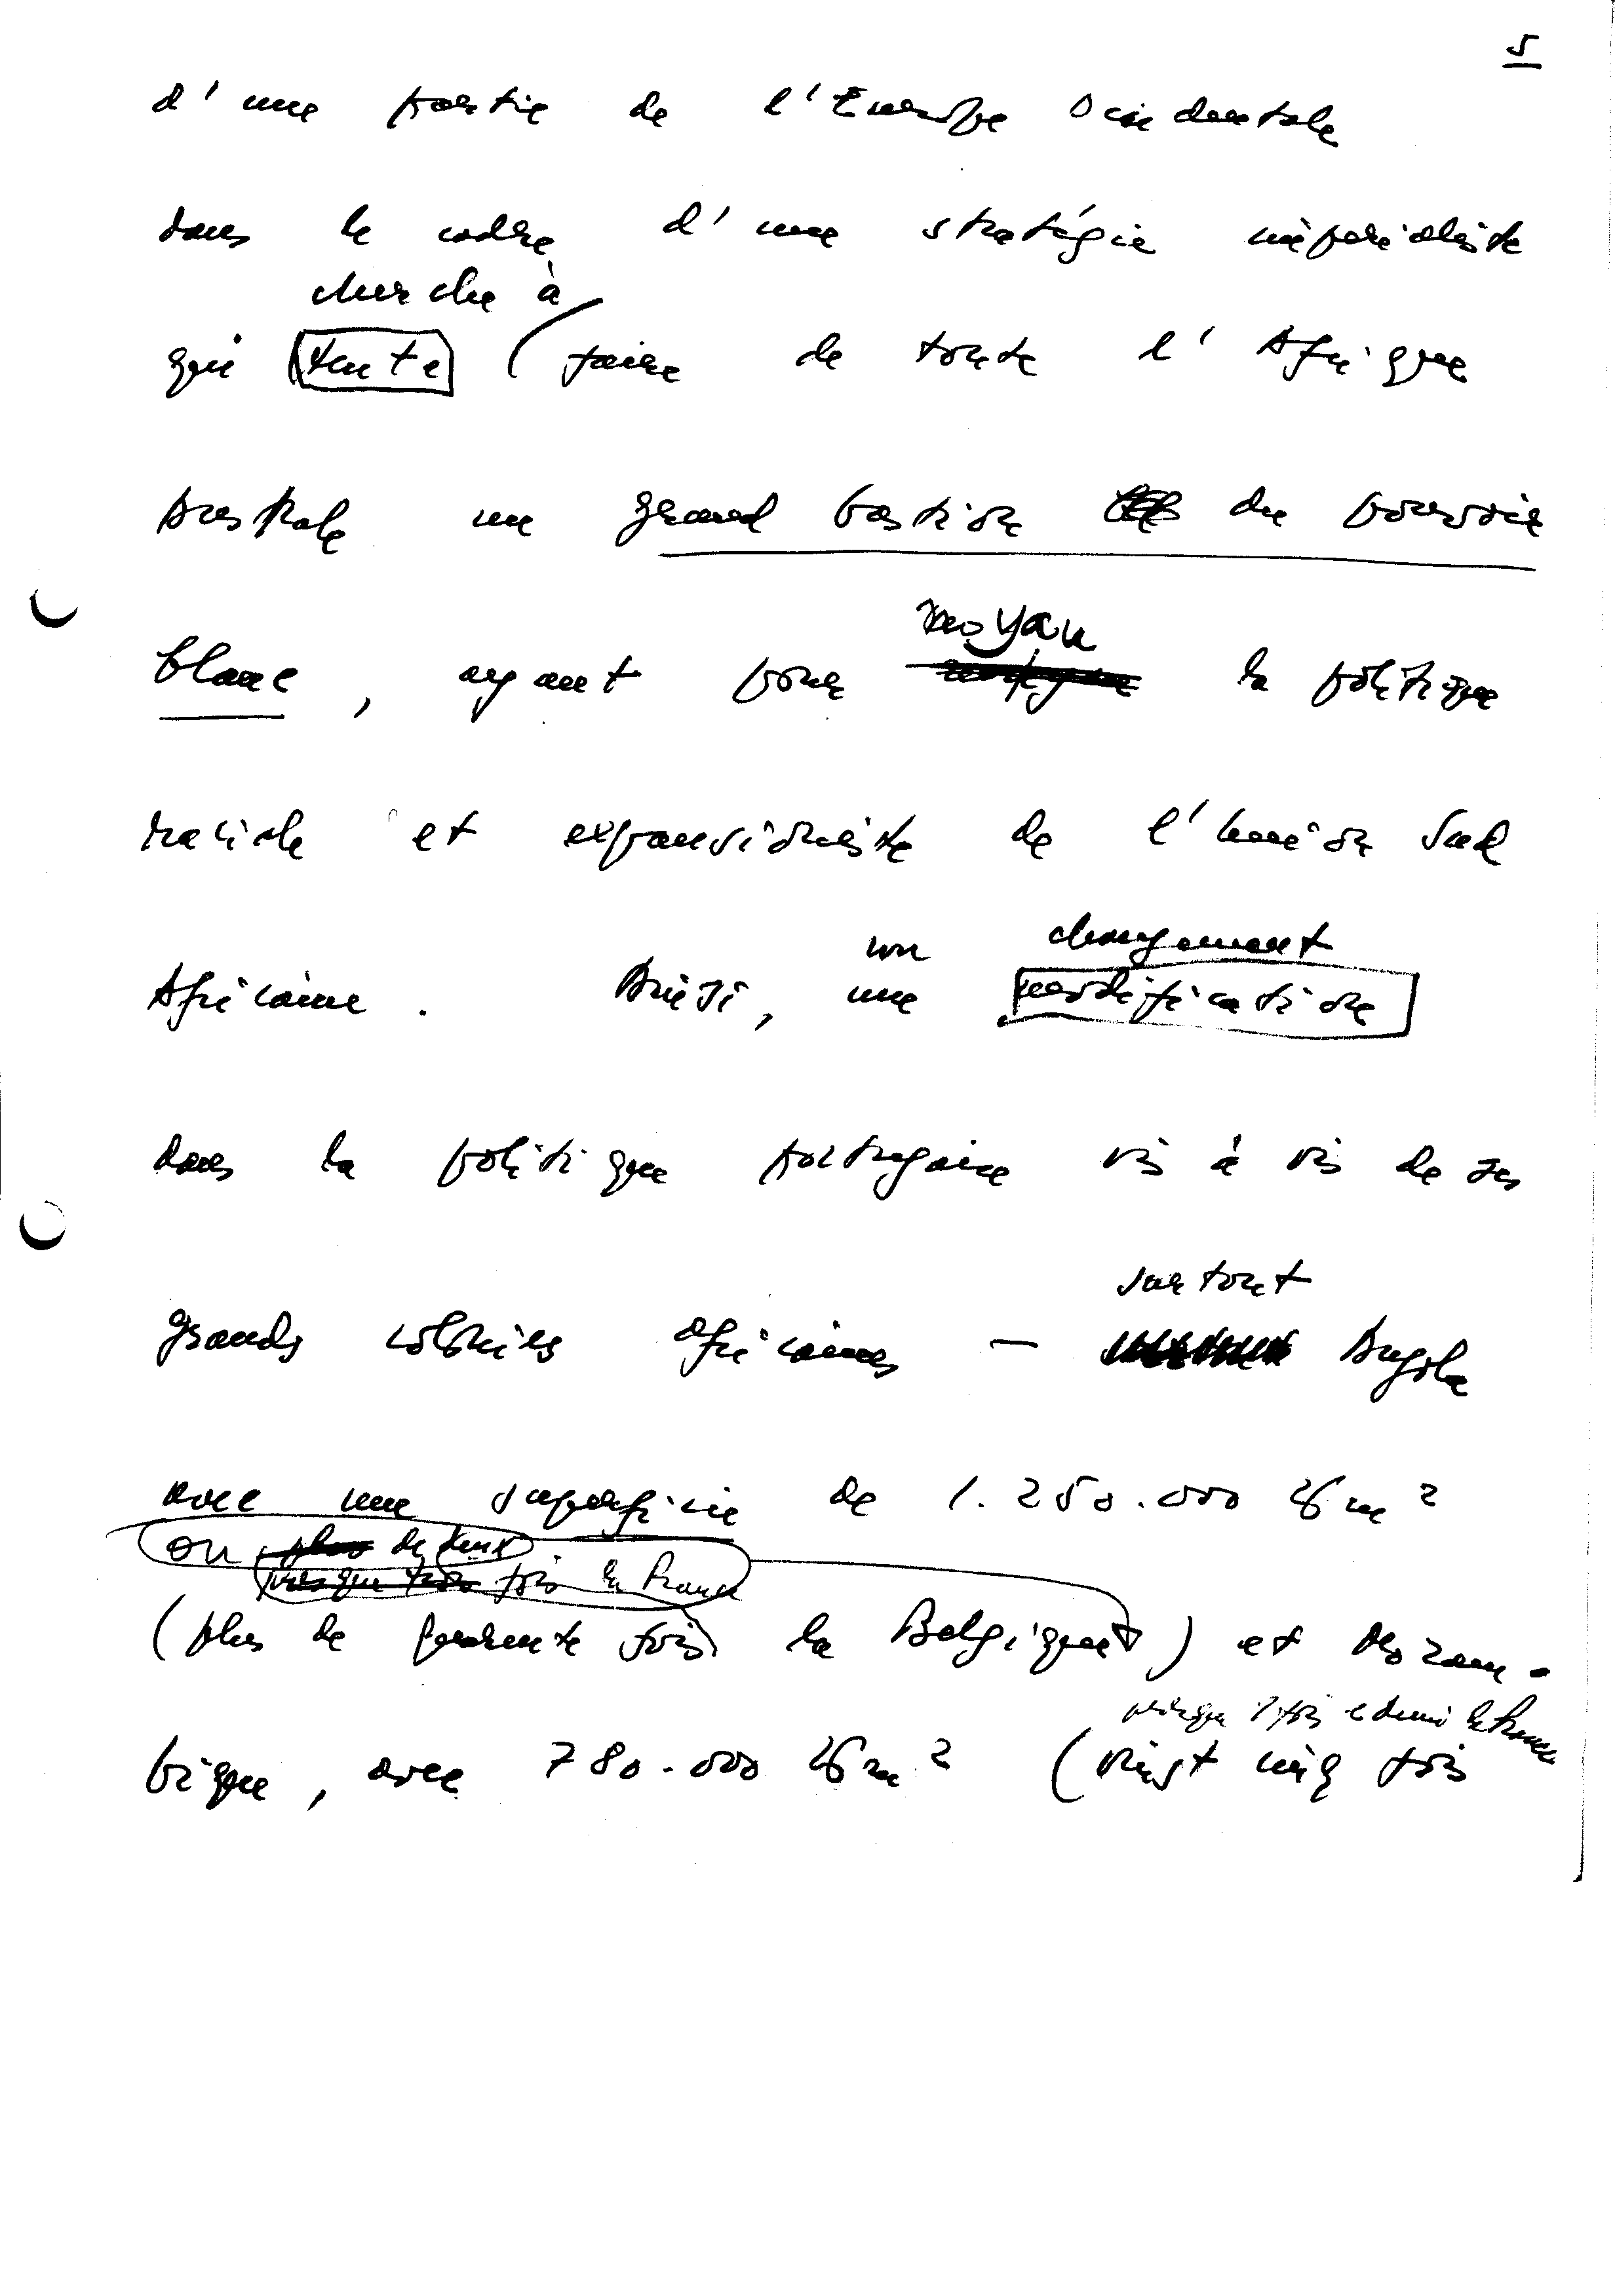 5
d'une partie de l'Europe Occidentale
dans le cadre d'une stratégie impérialiste
cherche à
qui tente (faire de toute l'Afrique
Australe un grand bastion du pouvoir
noyau
blanc, ayant pour la politique
raciste et expansioniste de l'Union Sud
un changement
Africaine. Ainsi, une modification
dans la politique portugaise vis à vis de ses
surtout
grands colonies africaines — Angola
avec une superficie de 1.250.000 Km²
ou plus de deux
presque trois fois la France
(plus de quarante fois la Belgique) et Mozam-
presque 1 fois e demi la France
bique, avec 780.000 Km² (vingt cinq fois